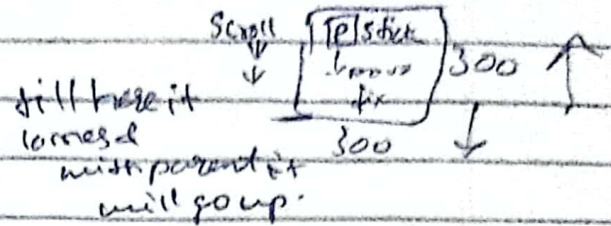 Scroll
P stick
300
fix
till here it
300
with parent it
will go up.